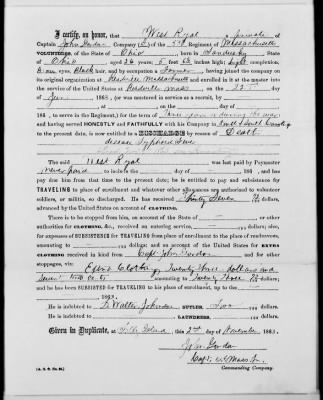 I certify, on honor, that West Ryal a private
Captain John Gordon Company Regiment of Massachusetts
VOLUNTEERS, of the State of Ohio born in Sandusky State of
Ohio, aged 26 years; 5 feet 6½ inches high; light complexion,
eyes, Black hair, and by occupation a Farmer, having joined the company on its
original organization at Readville Massachusetts and enrolled in it at the muster into
the service of the United States at Readville Mass on the
1863, (or was mustered in service as a recruit, by
at , on the day of ,
186 , to serve in the Regiment,) for the term of Three years or during the war
and having served HONESTLY and FAITHFULLY with his Company in South Carolina
to the present date, is now entitled to a DISCHARGE by reason of Death
disease Typhoid Fever
The said West Ryal was last paid by Paymaster
never paid to include the day of , 186 , and has
pay due him from that time to the present date; he is entitled to pay and subsistence for
TRAVELING to place of enrollment and whatever other allowances are authorized to volunteer
soldiers, or militia, so discharged. He has received Thirty Seven dollars,
advanced by the United States on account of CLOTHING.
There is to be stopped from him, on account of the State of , or other
authorities for CLOTHING, &c., received on entering service, dollars; also,
for expenses of SUBSISTENCE for TRAVELING from place of enrollment to the place of rendezvous,
amounting to dollars; and on account of the United States for EXTRA
CLOTHING received in kind from Capt John Gordon and for other
stoppages, viz:
Extra Clothing Twenty three dollars and
cts amounting to Twenty Three dollars;
and he has been SUBSISTED for TRAVELING to his place of enrollment, to the
1863.
He is indebted to Walter Johnson SUTLER, dollars.
He is indebted to , LAUNDRESS, dollars.
Given in Duplicate, at Folly Island this 2nd day of November 1863.
John Gordon
Capt. Mass
Commanding Company.